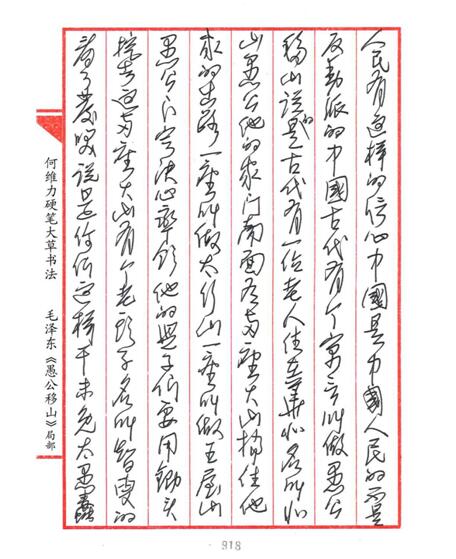 人民有这样的信心中國是中國人民的不是
反动派的中國古代有个寓言叫做愚公
移山说的是古代有一位老人住在華北名叫北
山愚公他的家门南面有两座大山挡住他
家的出路一座叫做太行山一座叫做王屋山
愚公下定决心率领他的兒子们要用锄头
挖去这两座大山有个老头子名叫智叟的
看了發笑说是你们这样干未免太愚蠢
何维力硬笔大草书法 毛泽东《愚公移山》局部